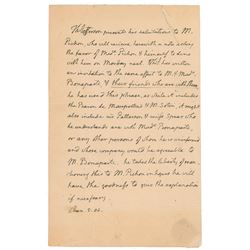 Th: Jefferson presents his salutations to M.
Pichon, who will receive herewith a note asking
the favor of Made. Pichon & himself to dine
with him on Monday next. He has written
an invitation to the same effect to M. & Made
Bonaparte & their friends who are with them.
he has used this phrase, as while it includes
the Messrs. de Maupertuis & M. Sotin, it might
also include mr Patterson & wife & Spear who
he understands are with Made. Bonaparte,
or any other persons of whom he is uninformed
and whose company would be agreeable to
M. Bonaparte. he takes the liberty of men-
tioning this to M. Pichon in hopes he will
have the goodness to give the explanation
if necessary.